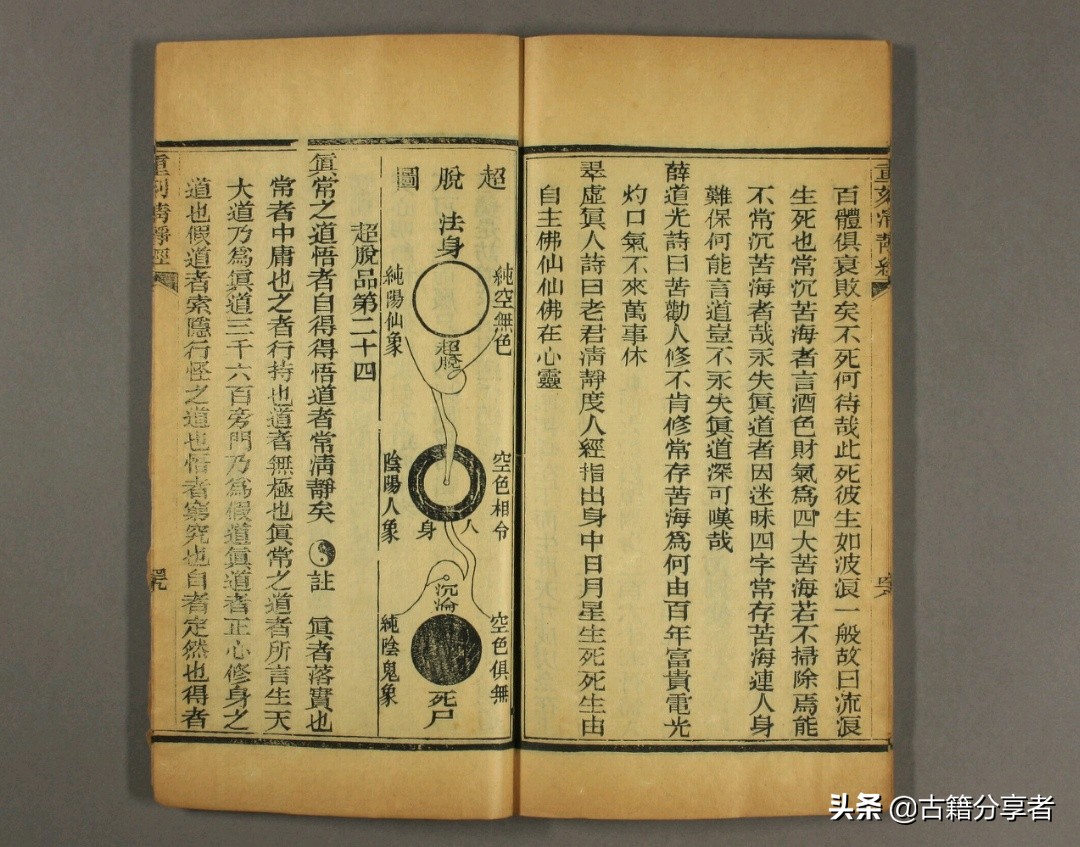 百體俱衰敗矣不死何待哉此死彼生如波浪一般故曰流浪
生死也常沉苦海者言酒色財氣為四大苦海若不掃除焉能
不常沉苦海者哉永失眞道者因迷昧四字常存苦海連人身
難保何能言道豈不永失眞道深可嘆哉
薛道光詩曰苦勸人修不肯修常存苦海為何由百年富貴電光
灼口氣不來萬事休
翠虛眞人詩曰老君淸靜度人經指出身中日月星生死死生由
自主佛仙仙佛在心靈
超脫圖
純空無色
法身
超脫
純陽仙象
空色相令
人身
陰陽人象
空色俱無
沉淪
死尸
純陰鬼象
超脫品第二十四
眞常之道悟者自得得悟道者常淸靜矣 註 眞者落實也
常者中庸也之者行持也道者無極也眞常之道者所言生天
大道乃為眞道三千六百旁門乃為假道眞道者正心修身之
道也假道者索隱行怪之道也悟者窮究也自者定然也得者
頭条 @古籍分享者